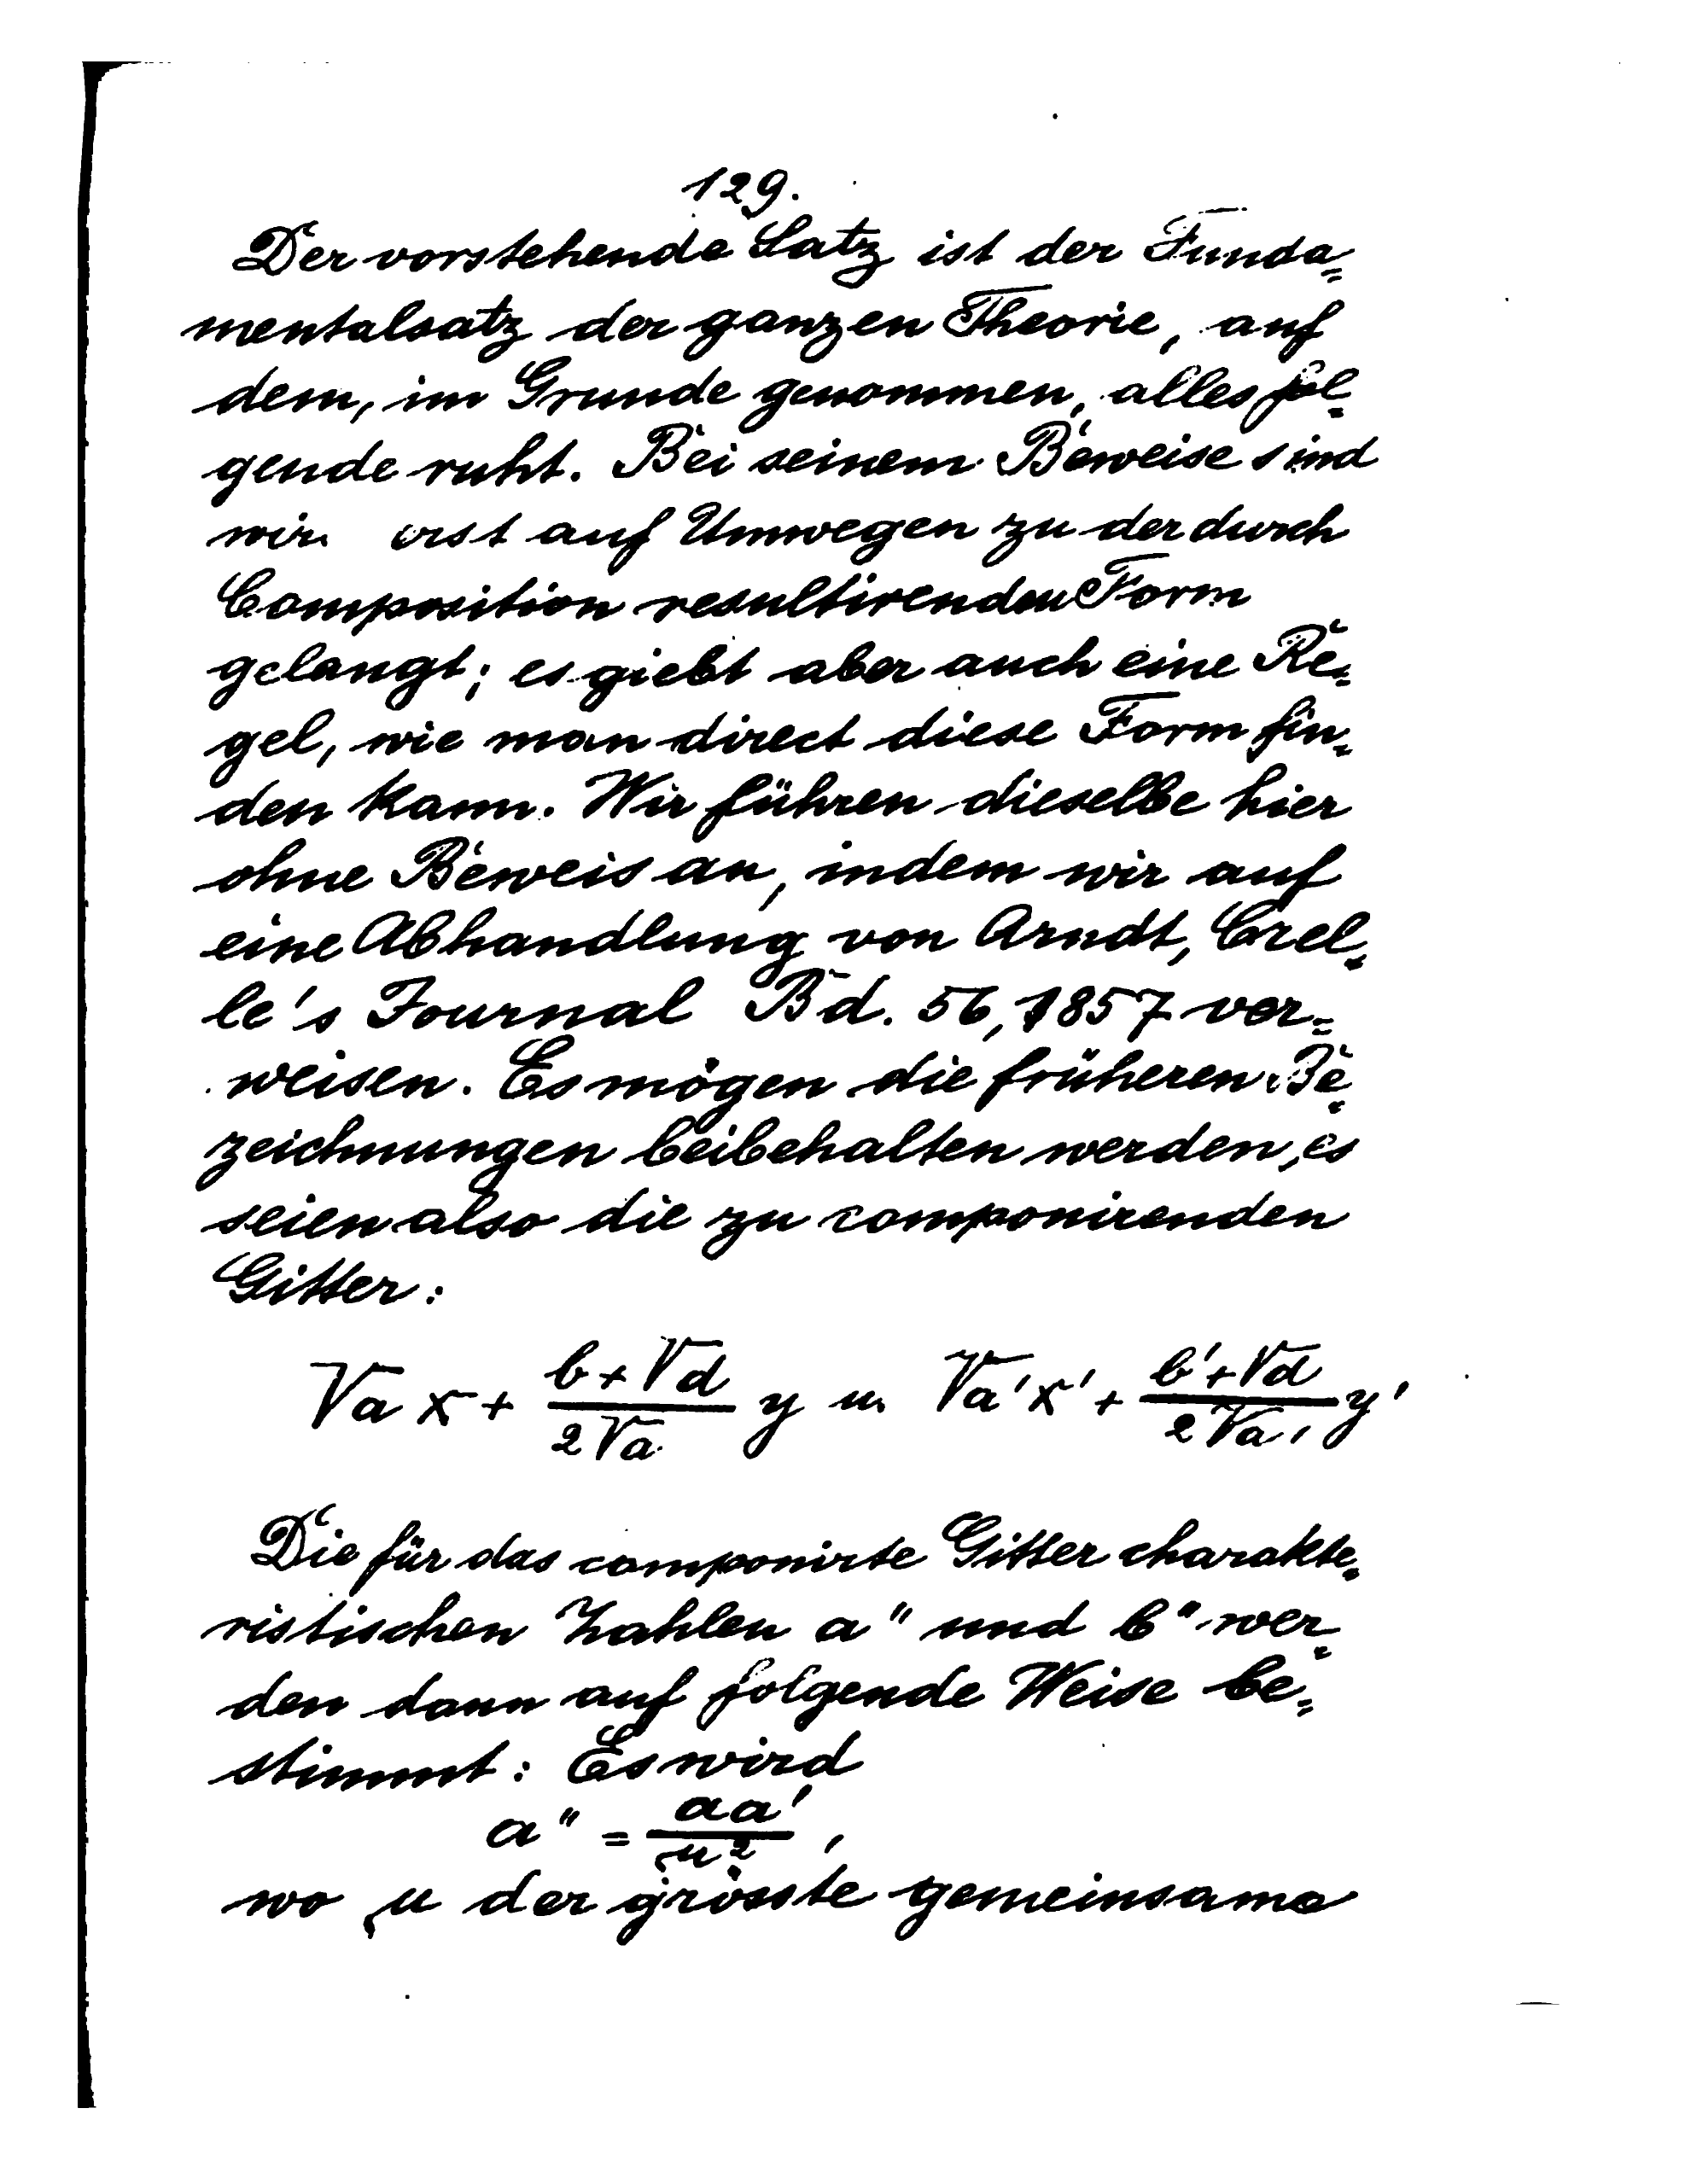 129.
Der vorstehende Satz ist der Funda=
mentalsatz der ganzen Theorie, auf
dem, im Grunde genommen, alles fol=
gende ruht. Bei seinem Beweise sind
wir erst auf Umwegen zu der durch
Composition resultirenden Form
gelangt; es giebt aber auch eine Re=
gel, wie man direct diese Form fin=
den kann. Wir führen dieselbe hier
ohne Beweis an, indem wir auf
eine Abhandlung von Arndt, Crel=
le's Journal Bd. 56, 1857 ver=
weisen. Es mögen die früheren Be=
zeichnungen beibehalten werden, es
seien also die zu componirenden
Gitter:
√a x + (b + √d)/(2√a) y u. √a' x' + (b' + √d)/(2√a') y'
Die für das componirte Gitter charakte=
ristischen Zahlen a" und b" wer=
den dann auf folgende Weise be=
stimmt: Es wird
a" = aa'/μ²,
wo μ der grösste gemeinsame